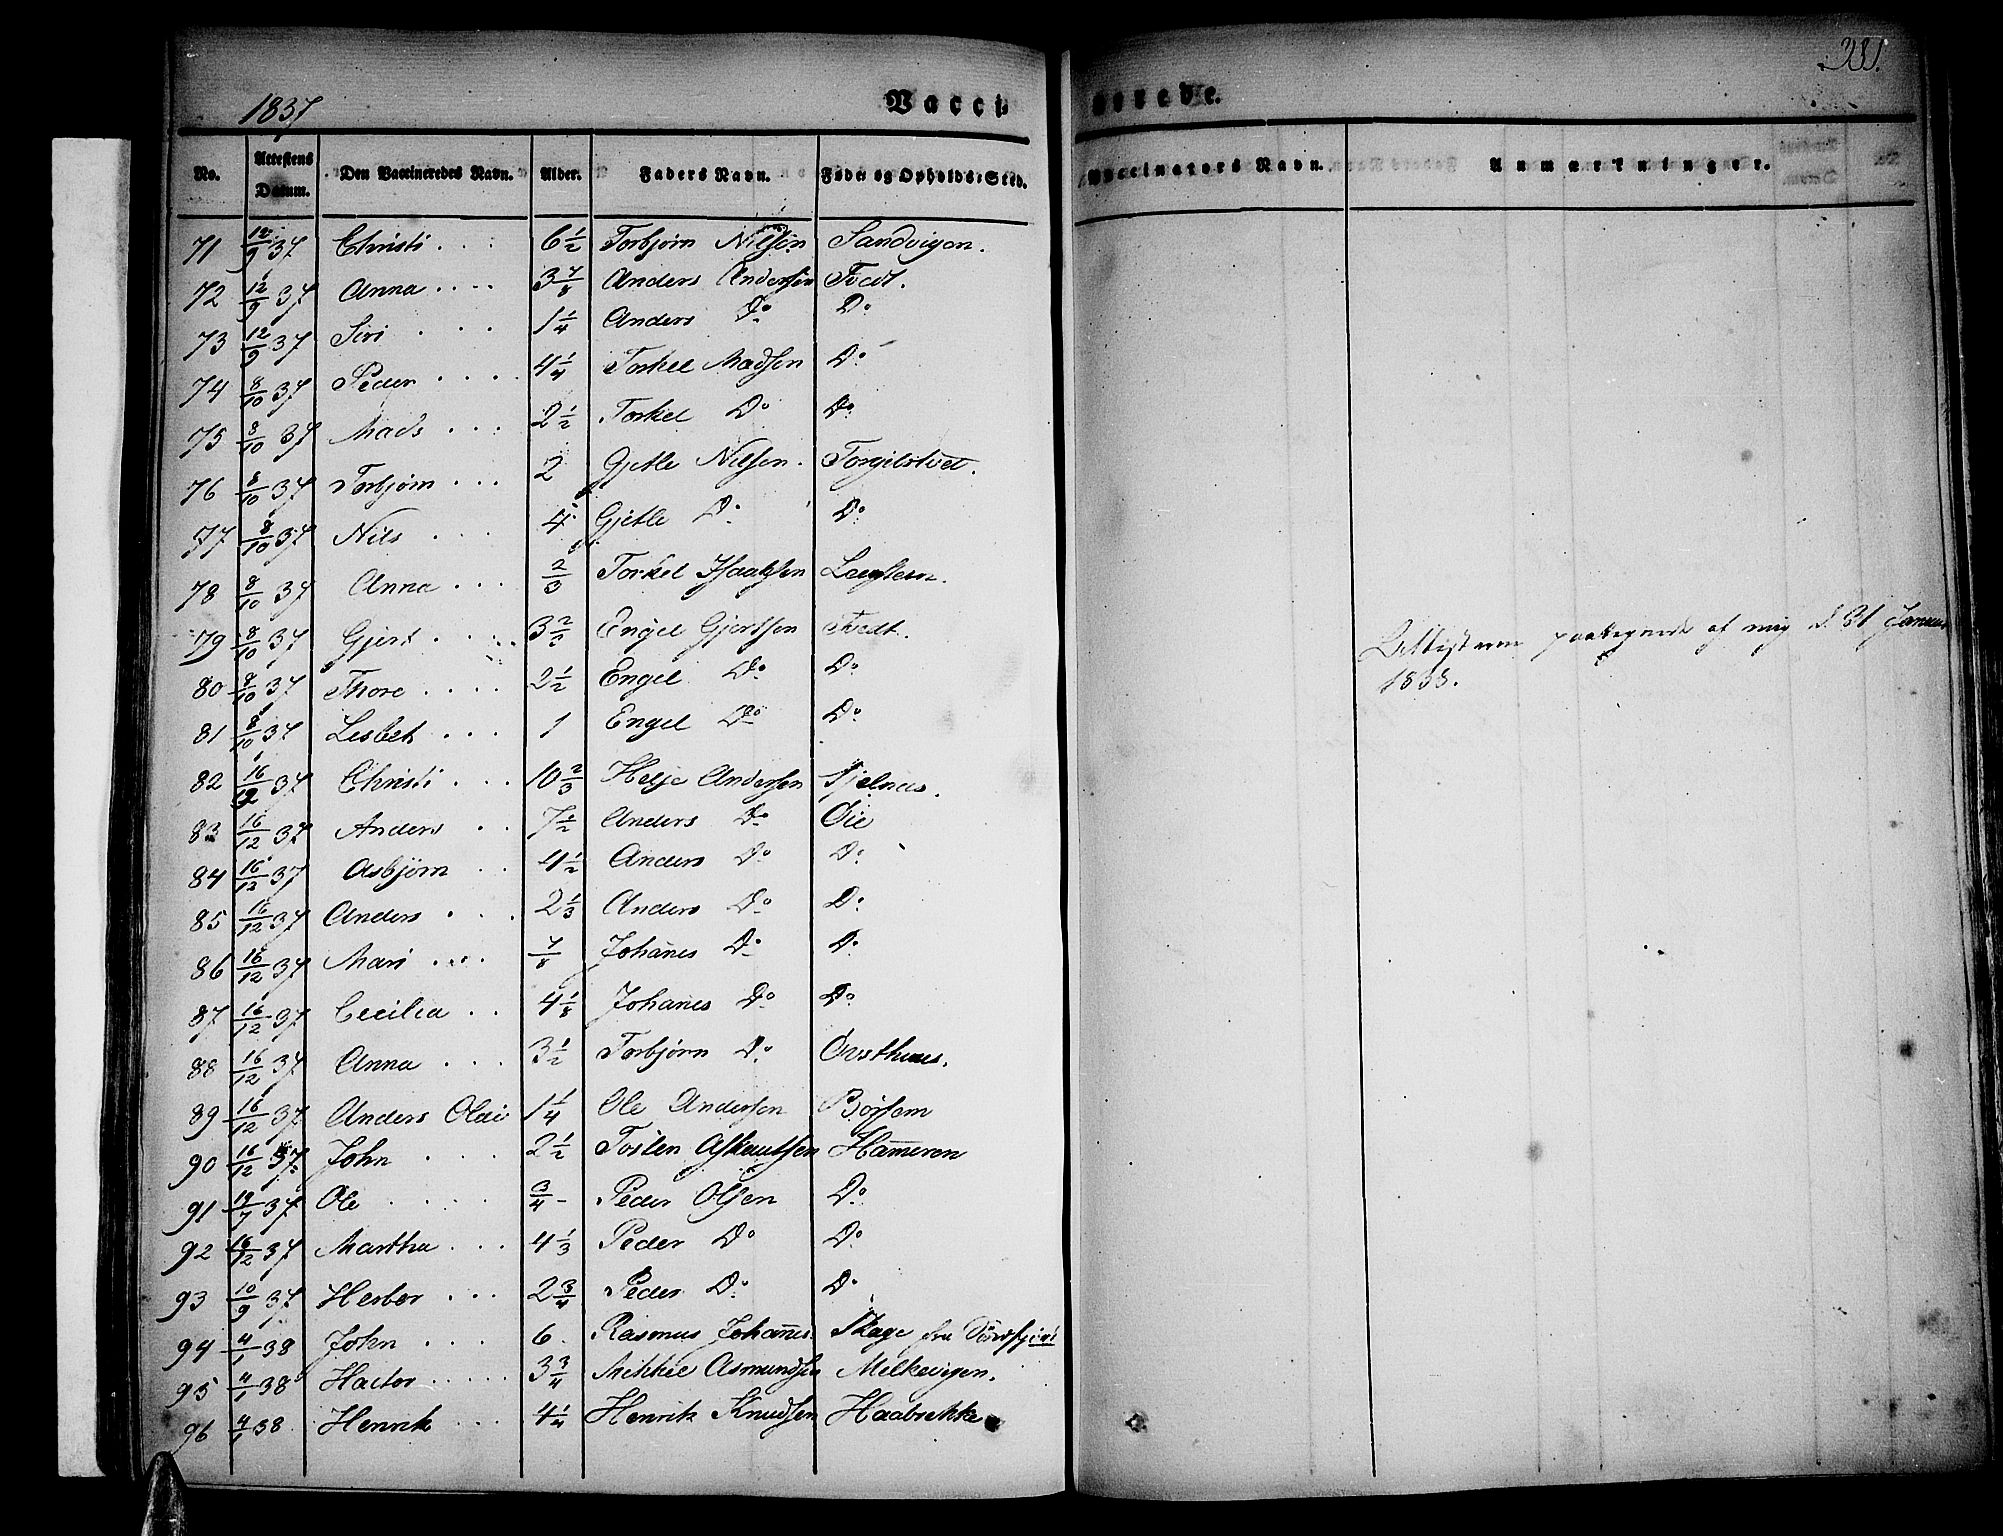 1837 Vacci
nerede. 281.
No. Attestens Datum. Den Vaccineredes Navn. Alder. Faders Navn. Føde- og Opholds-Sted.
Vaccinators Navn. Anmærkninger.
71 12/9 37 Christi . . . 6 1/2 Torbjørn Nilsøn Sandvigen.
72 12/9 37 Anna . . . . 3 7/8 Anders Andersen Tvedt.
73 12/9 37 Siri . . . 1 1/4 Anders Do Do
74 8/10 37 Peder . . . . 4 1/4 Torkel Madsen Do
75 8/10 37 Mads . . . 2 1/2 Torkel Do Do
76 8/10 37 Torbjørn . . . 2 Gjetle Nilsen. Torgilstvet.
77 8/10 37 Nils . . . 4 Gjetle Do Do
78 8/10 37 Anna . . . 2/3 Torkel
79 8/10 37 Gjert . . . . 3 Engel Gjertsen Tvedt.
80 8/10 37 Thore . . . . 2 1/2 Engel Do Do
81 8/10 37 Lisbet . . . 1 Engel Do Do
82 16/12 37 Christi . . . 10 2/3 Helje Andersen Tjelnæs.
83 16/12 37 Anders . . 7 1/2 Anders Do Øie
84 16/12 37 Asbjørn . . 4 1/2 Anders Do Do
85 16/12 37 Anders . . . 2 1/3 Anders Do Do
86 16/12 37 Mari . . . . 7/8 Johanes Do Do
87 16/12 37 Cecilia . . 4 1/8 Johanes Do Do
88 16/12 37 Anna . . . 3 1/2 Torbjørn Do Øvsthuus.
89 16/12 37 Anders Olai 1 1/4 Ole Andersen Børsem
90 16/12 37 John . . . 2 1/2 Tosten Hameren
91 19/7 37 Ole . . . . 3/4 Peder Olsen Do
92 16/12 37 Martha . . . 4 1/3 Peder Do Do
93 10/9 37 Herbor . . . 2 3/4 Peder Do Do
94 4/1 38 John . . . 6 Rasmus Johannes. Skage fra
95 4/1 38 Hactor . . . . . 3 3/4 Mikkel Asmundsen Melkevigen.
96 4/1 38 Henrik . . . 4 1/4 Henrik Knudsen Haabrekke
af mig d. 31 Januar
1838.